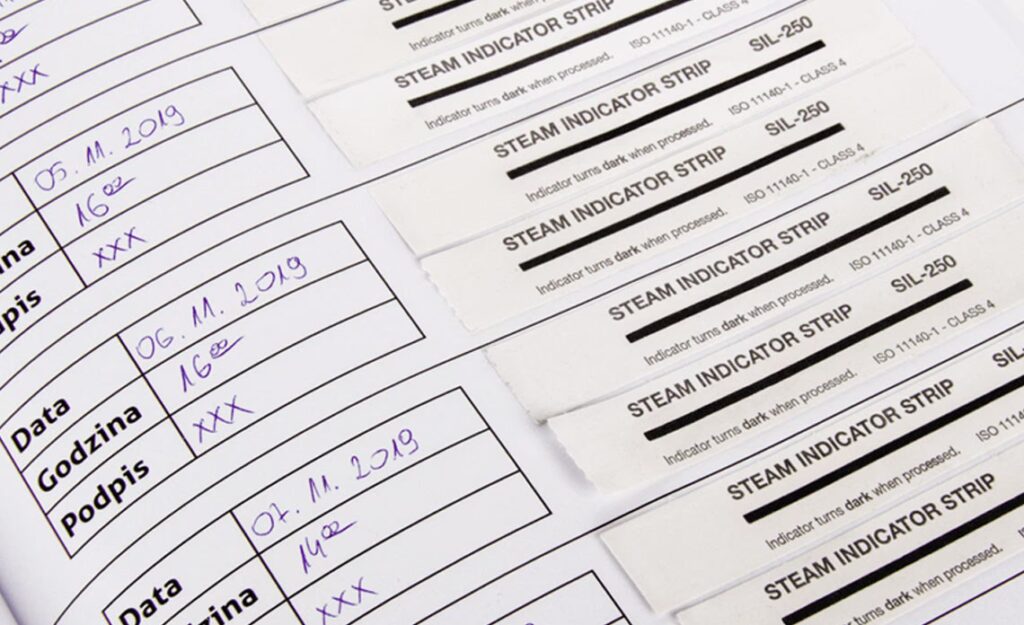 xxx
STEAM
Indicator turns dark when
STEAM INDICATOR STRIP
ISO 11140-1 - CLASS 4
Indicator turns dark when processed.
05. 11. 2019
16⁰⁰
xxx
ina
pis
STEAM INDICATOR STRIP SIL-250
Indicator turns dark when processed. ISO 11140-1 - CLASS 4
STEAM INDICATOR STRIP SIL-250
Indicator turns dark when processed. ISO 11140-1 - CLASS 4
Data 06. 11. 2019
Godzina 16⁰⁰
Podpis xxx
STEAM INDICATOR STRIP SIL-250
Indicator turns dark when processed. ISO 11140-1 - CLASS 4
STEAM INDICATOR STRIP SIL-250
Indicator turns dark when processed. ISO 11140-1 - CLASS 4
Data 07. 11. 2019
dzina 14⁰⁰
xxx
STEAM INDICATOR STRIP SIL
Indicator turns dark when processed. ISO 11140
STEAM INDICATOR STRIP
ator turns dark when processed. ISO